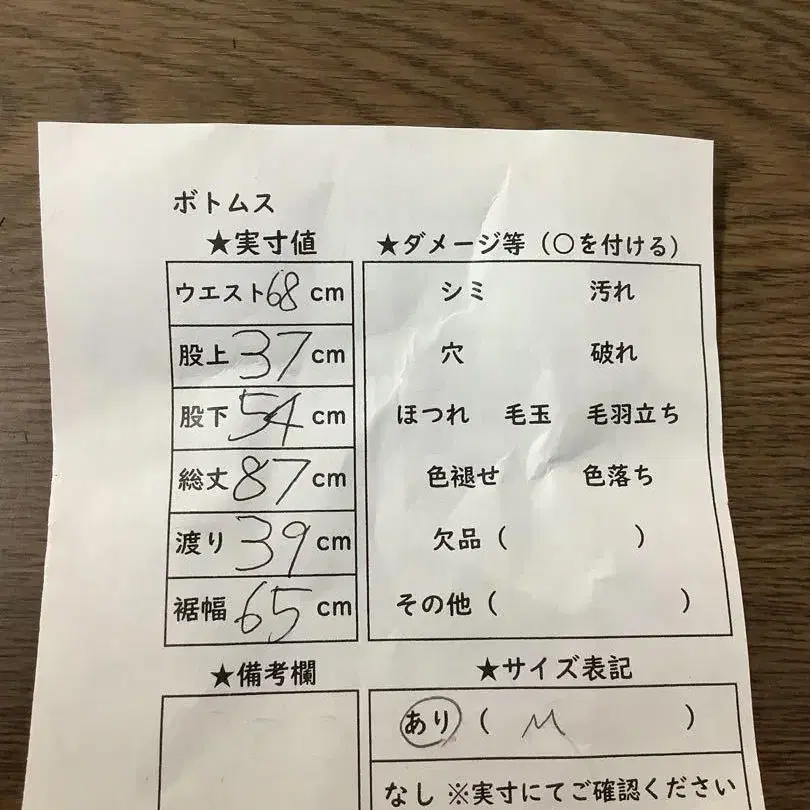 ボトムス
★実寸値
ウエスト68cm
股上37cm
股下54cm
総丈87cm
渡り39cm
裾幅65cm
★ダメージ等（○を付ける）
シミ 汚れ
穴 破れ
ほつれ 毛玉 毛羽立ち
色褪せ 色落ち
欠品（ ）
その他（ ）
★備考欄
★サイズ表記
あり（ M ）
なし ※実寸にてご確認ください